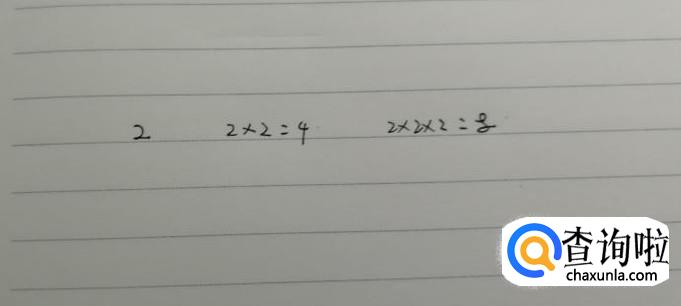 2 2×2=4 2×2×2=8
查询啦
chaxunla.com